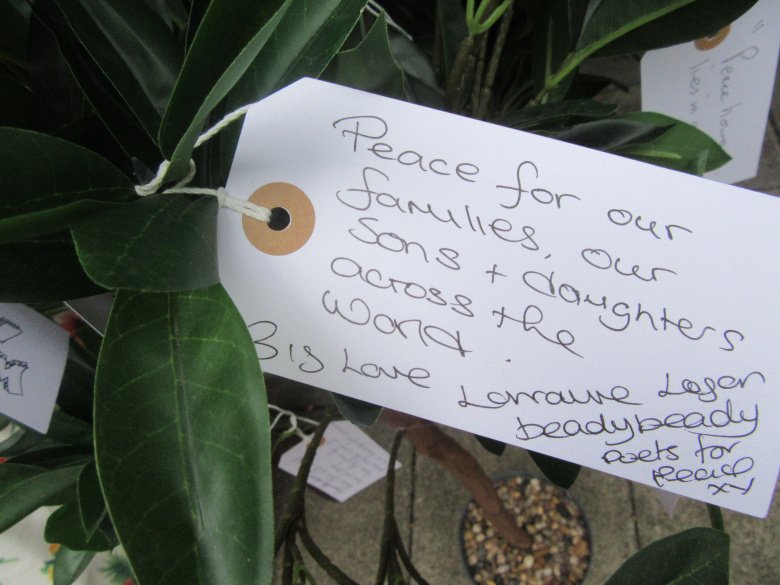 Peace for our
families, our
sons + daughters
across the
world.
Big Love Lorraine
beadybeady
poets for
peace
xx
" Peace
lies in